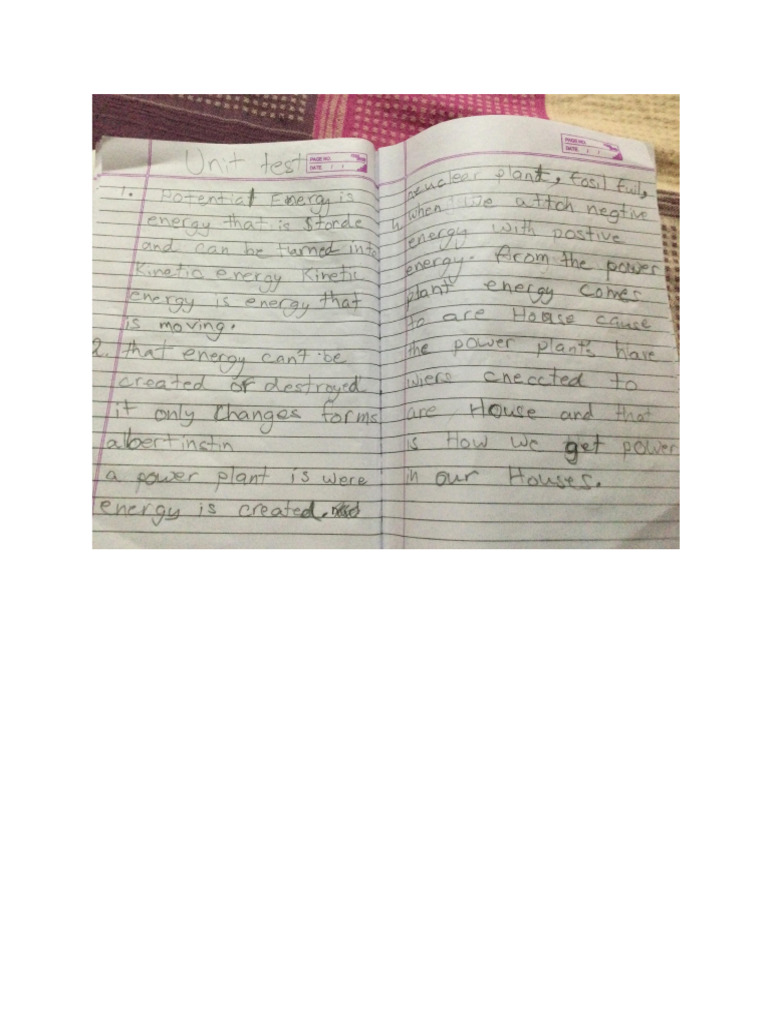 Unit test
PAGE NO.
DATE / /
1. Potential Energy is
energy that is Storde
and can be turned into
Kinetic energy Kinetic
energy is energy that
is moving.
2. that energy can't be
created or destroyed
it only Changes forms
albertinstin
a power plant is were
energy is created.
PAGE NO.
DATE / /
neuclear plant, fosil full,
h. when we attch negtive
energy with postive
energy. from the power
plant energy comes
to are House cause
the power plants have
wiers cneccted to
are House and that
is How we get power
in our Houses.